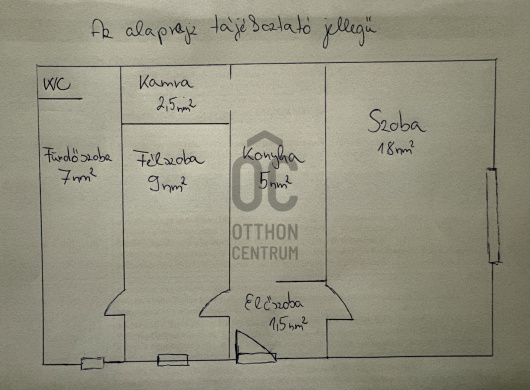 Az alaprajz tájékoztató jellegű
WC
Kamra
2,5m²
Fürdőszoba
7m²
Félszoba
9m²
Konyha
5m²
Szoba
18m²
OC
OTTHON
CENTRUM
Előszoba
1,5m²